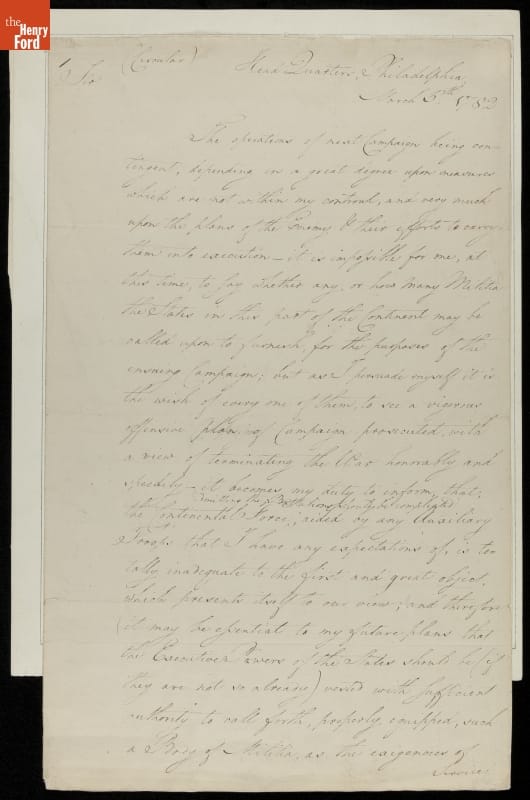 the
Henry
Ford
(Circular)
Head Quarters, Philadelphia
Sir
March 5th. 1782
The operations of next Campaign being con-
tingent, depending in a great degree upon measures
which are not within my controul, and very much
upon the plans of the Enemy & their efforts to carry
them into execution – it is impossible for me, at
this time, to say whether any, or how many Militia
the States in this part of the Continent may be
called upon to furnish, for the purposes of the
ensuing Campaign; but as I persuade myself it is
the wish of every one of them, to see a vigorous
offensive plan of Campaign prosecuted, with
a view of terminating the War honorably and
speedily – it becomes my duty to inform, that;
the Continental Force, aided by any Auxiliary
Troops that I have any expectations of, is to-
tally inadequate to the first and great object,
which presents itself to our view; and therefore
it may be essential to my future plans that
the Executive Powers of the States should be (if
they are not so already) vested with sufficient
authority to call forth, properly equipped, such
a Body of Militia, as the exigencies of
Service